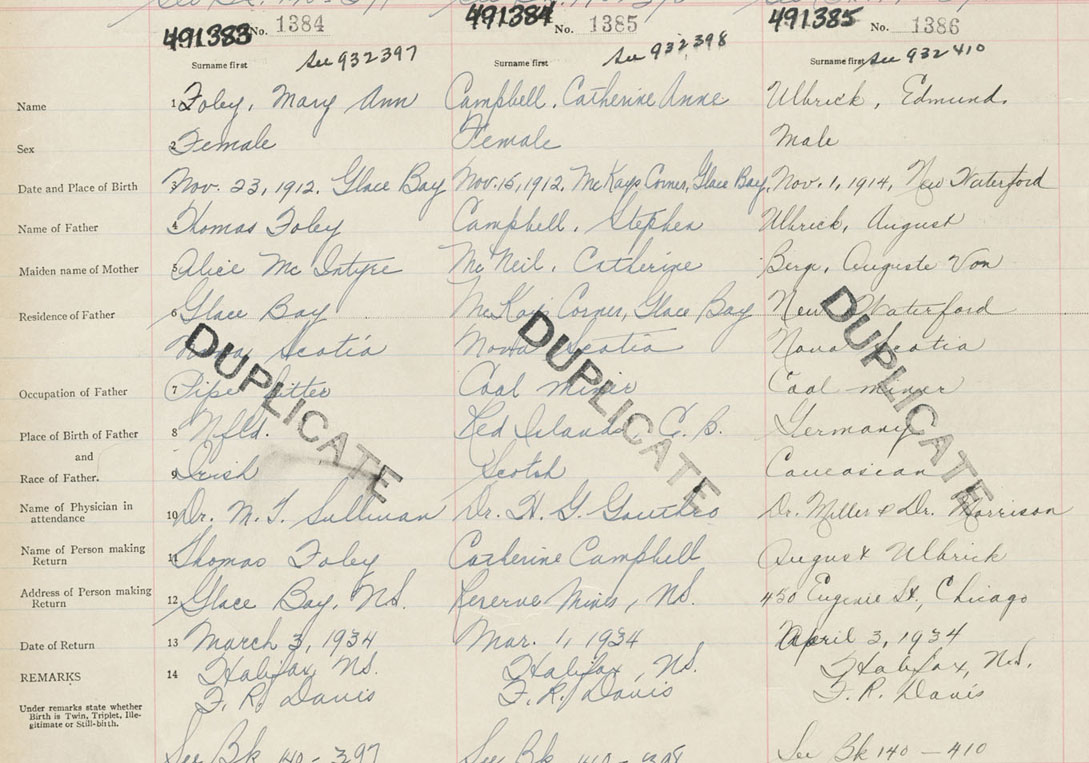 491383 No. 1384 491384 No. 1385 491385 No. 1386
See 932397 See 932398 See 932410
Surname first Surname first Surname first
Name 1 Foley, Mary Ann Campbell, Catherine Anne Ulbrick, Edmund.
Sex 2 Female Female Male
Date and Place of Birth 3 Nov. 23, 1912. Glace Bay Nov. 15, 1912, McKays Corner, Glace Bay. Nov. 1, 1914, New Waterford
Name of Father 4 Thomas Foley Campbell, Stephen Ulbrick, August
Maiden name of Mother 5 Alice McIntyre McNeil, Catherine Berg, Auguste Von
Residence of Father 6 Glace Bay McKays Corner, Glace Bay New Waterford
Nova Scotia Nova Scotia Nova Scotia
Occupation of Father 7 Pipe fitter Coal miner Coal miner
Place of Birth of Father 8 Nfld. Red Islands C. B. Germany
and
Race of Father. 9 Irish Scotch Caucasian
Name of Physician in
attendance 10 Dr. M. T. Sullivan Dr. H. G. Gouthro Dr. Miller & Dr. Morrison
Name of Person making
Return 11 Thomas Foley Catherine Campbell August Ulbrick
Address of Person making
Return 12 Glace Bay, N.S. Reserve Mines, N.S. 450 Eugenie St., Chicago
Date of Return 13 March 3, 1934 Mar. 1, 1934 April 3, 1934
REMARKS 14 Halifax, N.S. Halifax, N.S. Halifax, N.S.
F. R. Davis F. R. Davis F. R. Davis
Under remarks state whether
Birth is Twin, Triplet, Ille-
gitimate or Still-birth.
See Bk 140 - 397 See Bk 140 - 398 See Bk 140 - 410
DUPLICATE DUPLICATE DUPLICATE